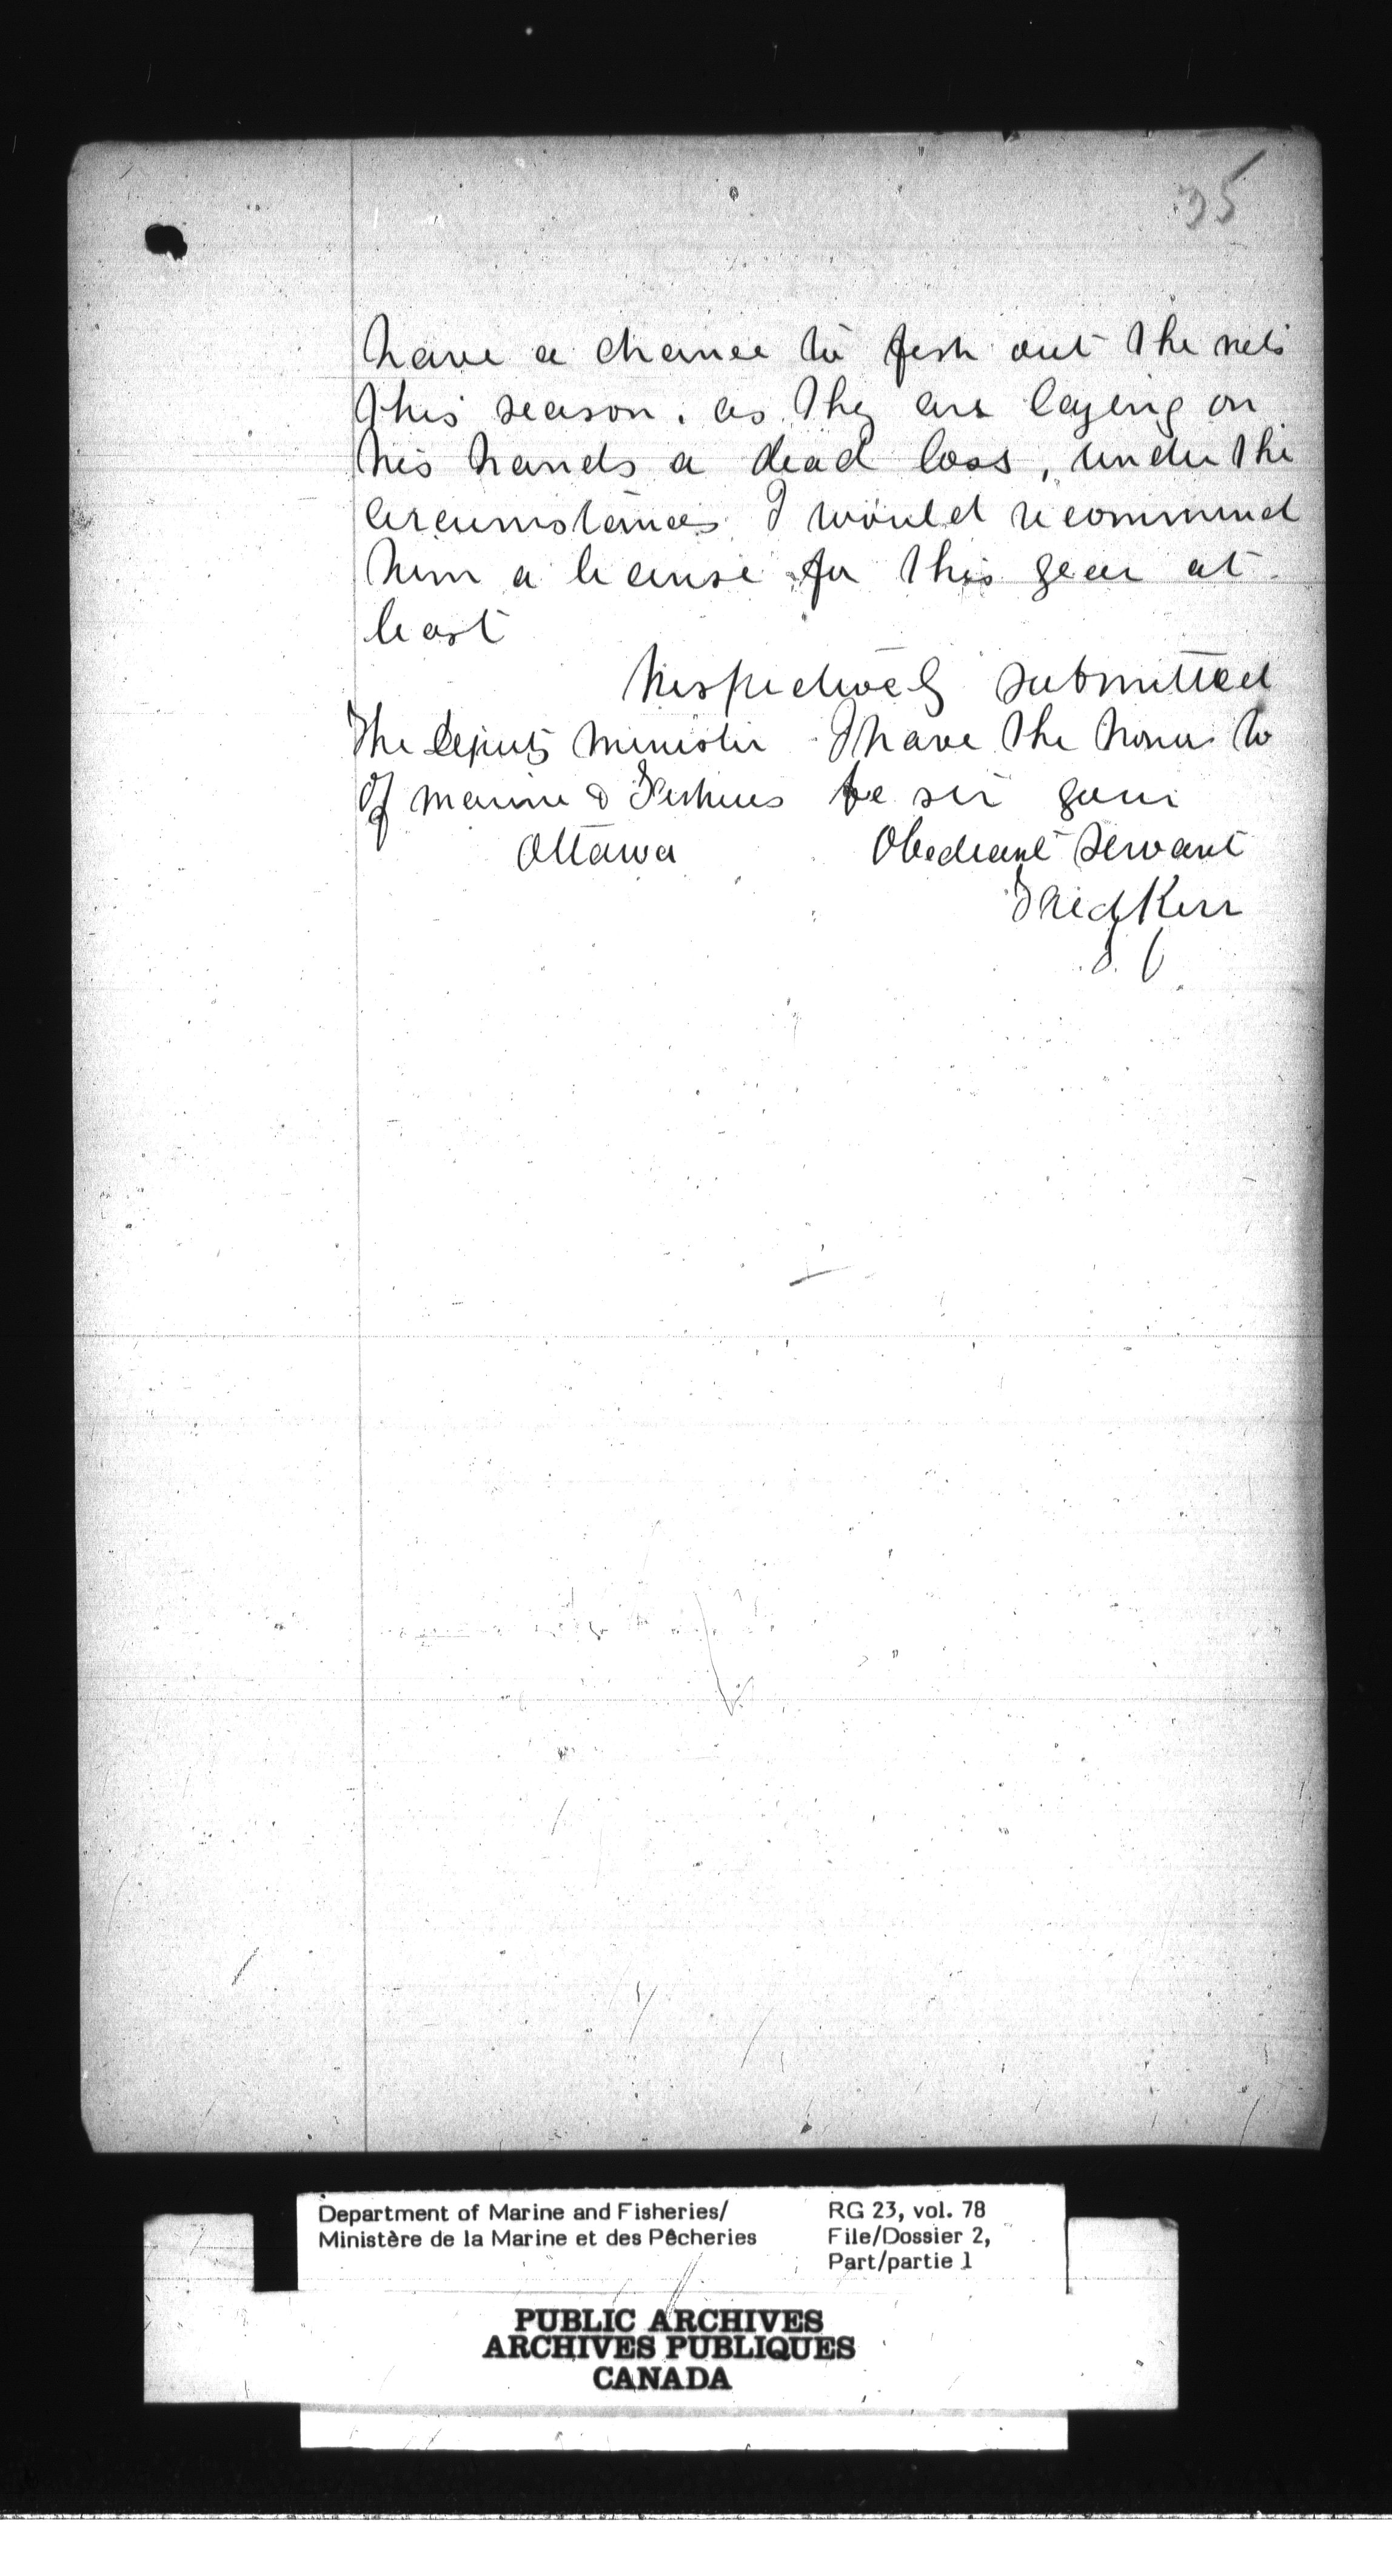 35
have a chance to fish out the nets
this season. as they are laying on
his hands a dead loss, under the
circumstances I would recommend
him a license for this year at
least
Respectively submitted
The Deputy Minister I have the honor to
Of Marine & Fisheries be sir your
Ottawa Obediant servant
Fred Kerr
Department of Marine and Fisheries/ RG 23, vol. 78
Ministère de la Marine et des Pêcheries File/Dossier 2,
Part/partie 1
PUBLIC ARCHIVES
ARCHIVES PUBLIQUES
CANADA